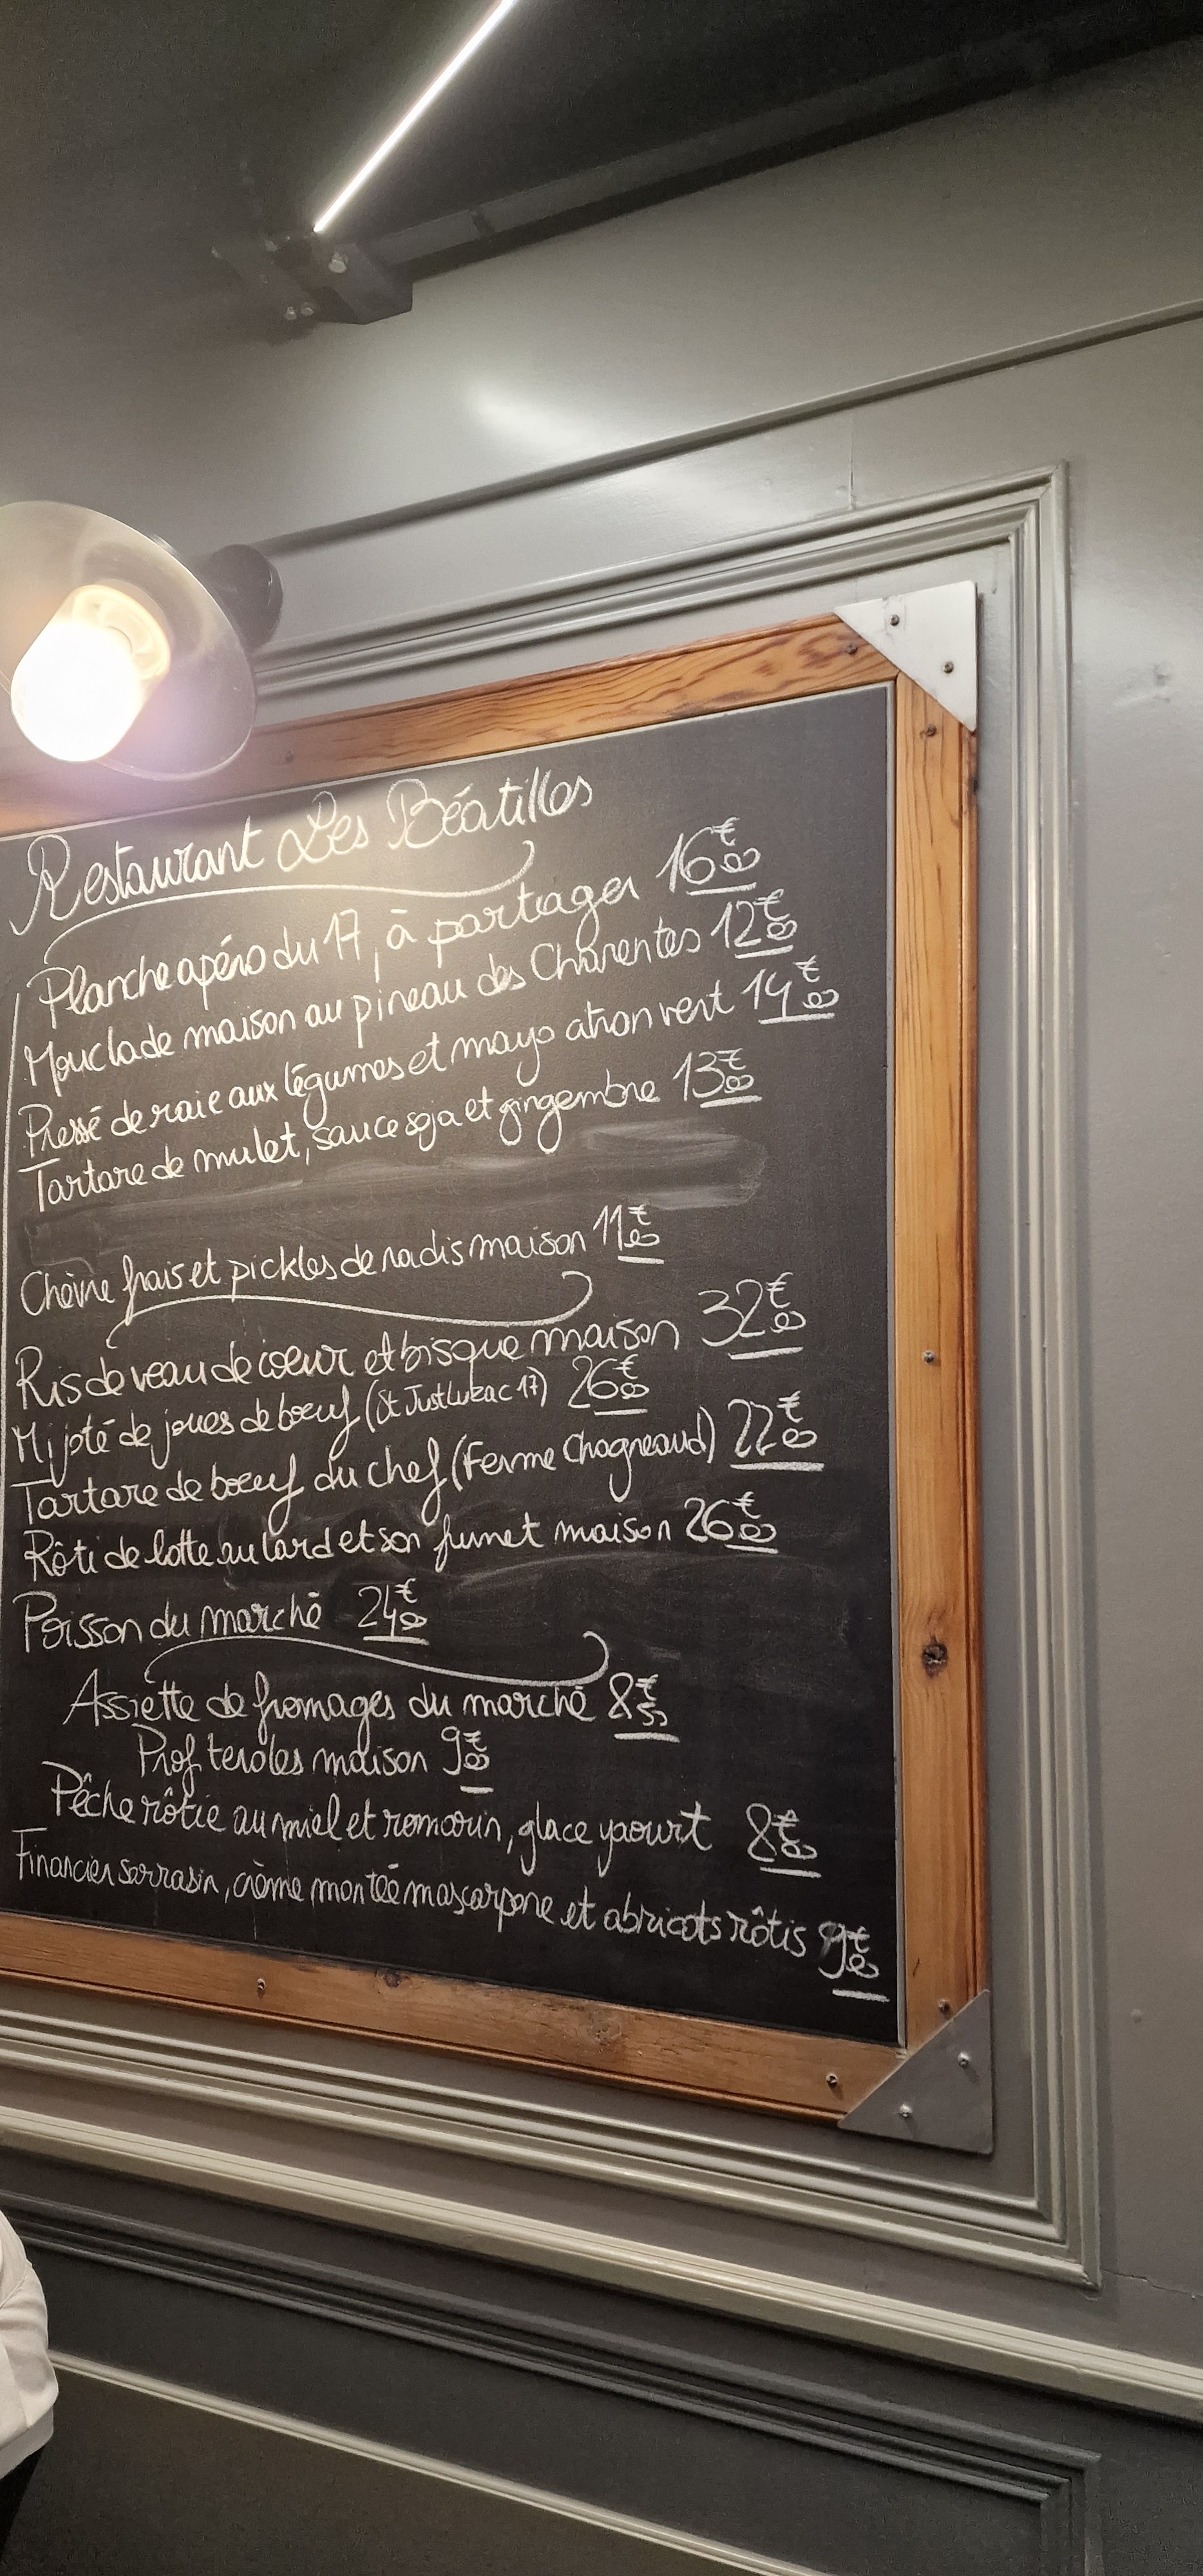 Restaurant Les Béatilles
Planche apéro du 17, à partager 16€00
Mouclade maison au pineau des Charentes 12€00
Pressé de raie aux légumes et mayo citron vert 14€00
Tartare de mulet, sauce soja et gingembre 13€00
Chèvre frais et pickles de radis maison 11€00
Ris de veau de coeur et bisque maison 32€00
Mijoté de joues de boeuf (St Just Luzac 17) 26€00
Tartare de boeuf du chef (Ferme Chagneaud) 22€00
Rôti de lotte au lard et son fumet maison 26€00
Poisson du marché 24€00
Assiette de fromages du marché 8€50
Profiteroles maison 9€00
Pêche rôtie au miel et romarin, glace yaourt 8€00
Financier sarrasin, crème montée mascarpone et abricots rôtis 9€00